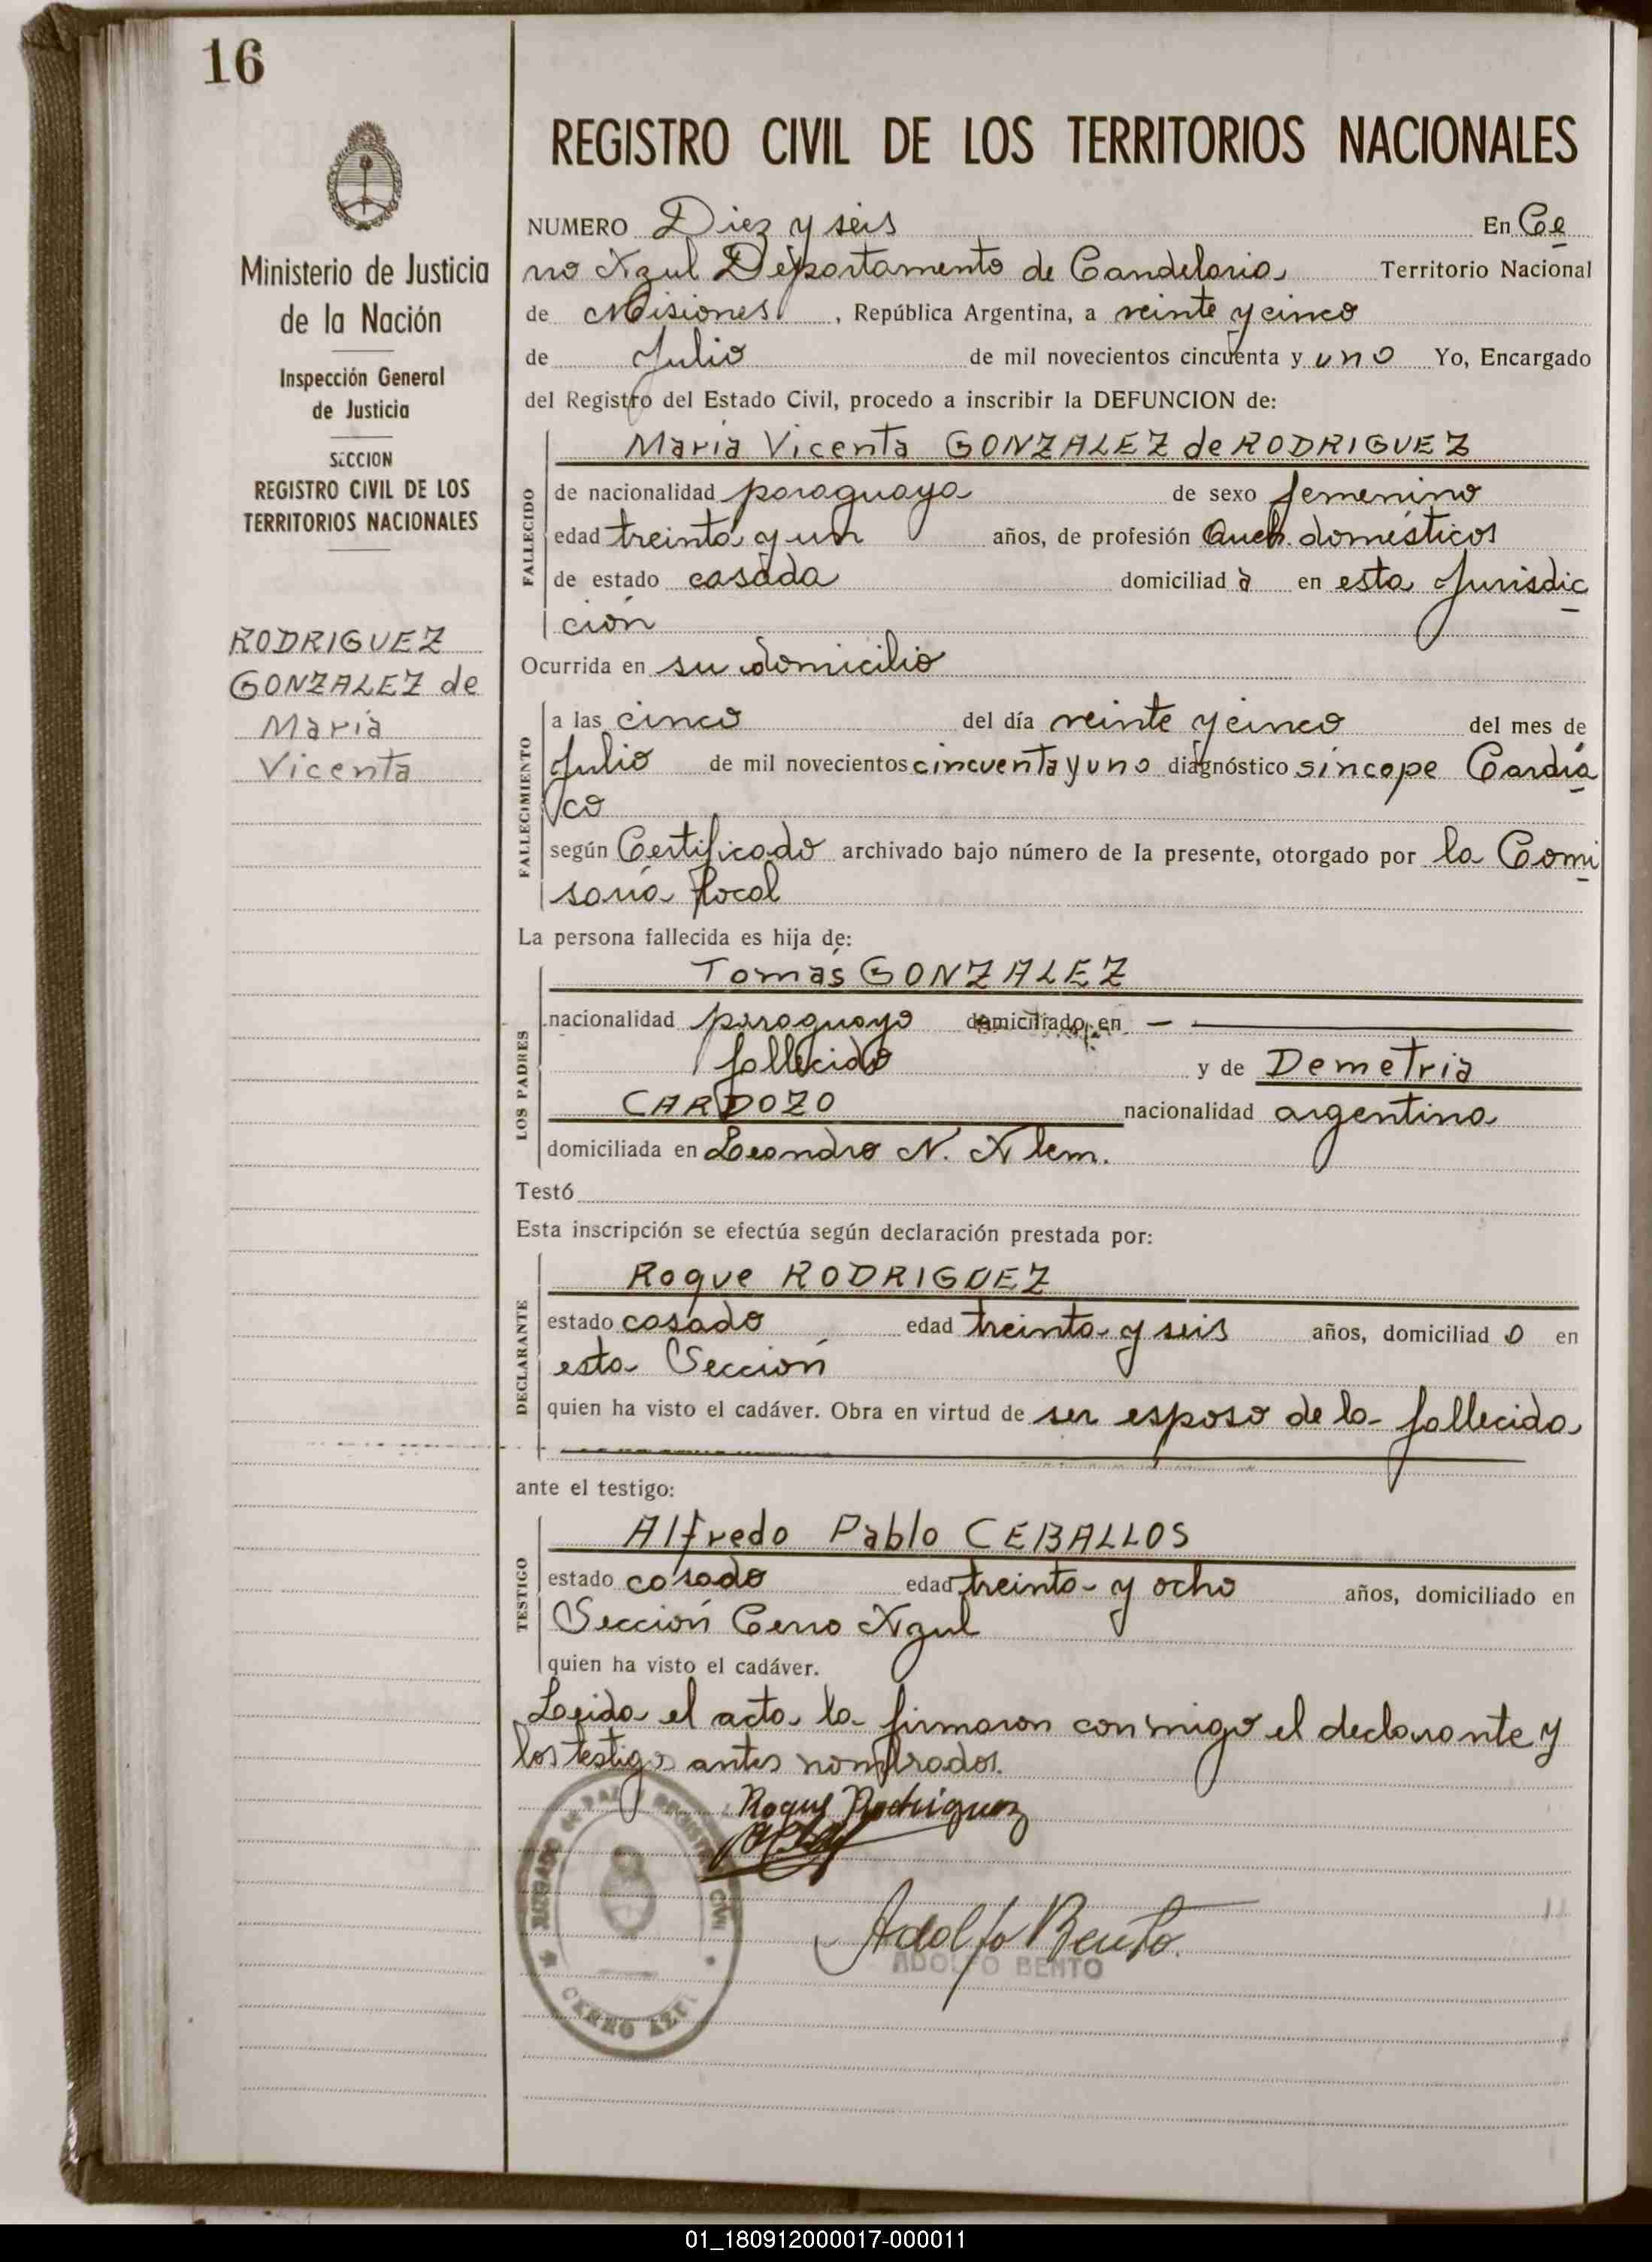 16
REGISTRO CIVIL DE LOS TERRITORIOS NACIONALES
Ministerio de Justicia
de la Nación
Inspección General
de Justicia
SECCION
REGISTRO CIVIL DE LOS
TERRITORIOS NACIONALES
RODRIGUEZ
GONZALEZ de
María
Vicenta
NUMERO Diez y seis En Ce
rro Azul Departamento de Candelaria Territorio Nacional
de Misiones, República Argentina, a veinte y cinco
de Julio de mil novecientos cincuenta y uno Yo, Encargado
del Registro del Estado Civil, procedo a inscribir la DEFUNCION de:
María Vicenta GONZALEZ de RODRIGUEZ
FALLECIDO
de nacionalidad paraguaya de sexo femenino
edad treinta y un años, de profesión Queh. domésticos
de estado casada domiciliad a en esta Jurisdic
ción
Ocurrida en su domicilio
FALLECIMIENTO
a las cinco del día veinte y cinco del mes de
Julio de mil novecientos cincuenta y uno diagnóstico síncope Cardía
co
según Certificado archivado bajo número de la presente, otorgado por la Comi
saría local
La persona fallecida es hija de:
LOS PADRES
Tomás GONZALEZ
nacionalidad paraguayo domiciliado en —
fallecido y de Demetria
CARDOZO nacionalidad argentina
domiciliada en Leandro N. Alem.
Testó
Esta inscripción se efectúa según declaración prestada por:
DECLARANTE
Roque RODRIGUEZ
estado casado edad treinta y seis años, domiciliad o en
esta Sección
quien ha visto el cadáver. Obra en virtud de ser esposo de la fallecida
ante el testigo:
TESTIGO
Alfredo Pablo CEBALLOS
estado casado edad treinta y ocho años, domiciliado en
Sección Cerro Azul
quien ha visto el cadáver.
Leida el acta la firmaron conmigo el declarante y
los testigos antes nombrados.
Roque Rodriguez
JUZGADO DE PAZ Y REGISTRO CIVIL
CERRO AZUL
Adolfo Bento
ADOLFO BENTO
01_180912000017-000011